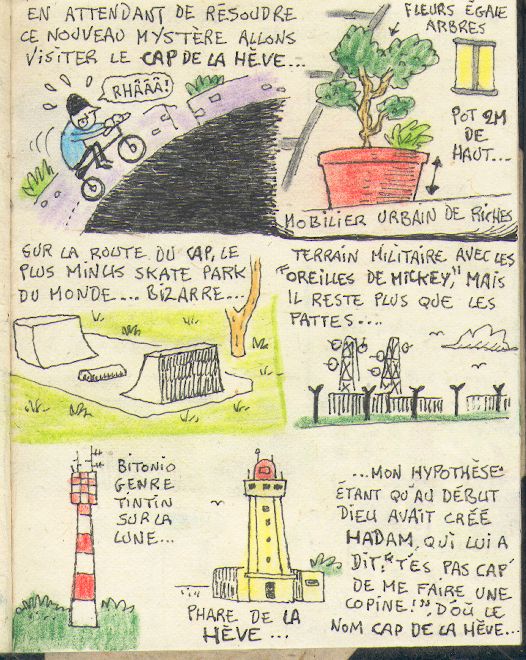 EN ATTENDANT DE RÉSOUDRE
CE NOUVEAU MYSTÈRE ALLONS
VISITER LE CAP DE LA HÈVE...
RHÂÂÂ!
FLEURS ÉGALE
ARBRES
POT 2M
DE
HAUT...
MOBILIER URBAIN DE RICHES
SUR LA ROUTE DU CAP, LE
PLUS MINUS SKATE PARK
DU MONDE... BIZARRE...
TERRAIN MILITAIRE AVEC LES
"OREILLES DE MICKEY," MAIS
IL RESTE PLUS QUE LES
PATTES...
BITONIO
GENRE
TINTIN
SUR LA
LUNE...
PHARE DE LA
HÈVE...
...MON HYPOTHÈSE
ÉTANT QU'AU DÉBUT
DIEU AVAIT CRÉÉ
HADAM, QUI LUI A
DIT: "T'ES PAS CAP'
DE ME FAIRE UNE
COPINE!". D'OÙ LE
NOM CAP DE LA HÈVE...